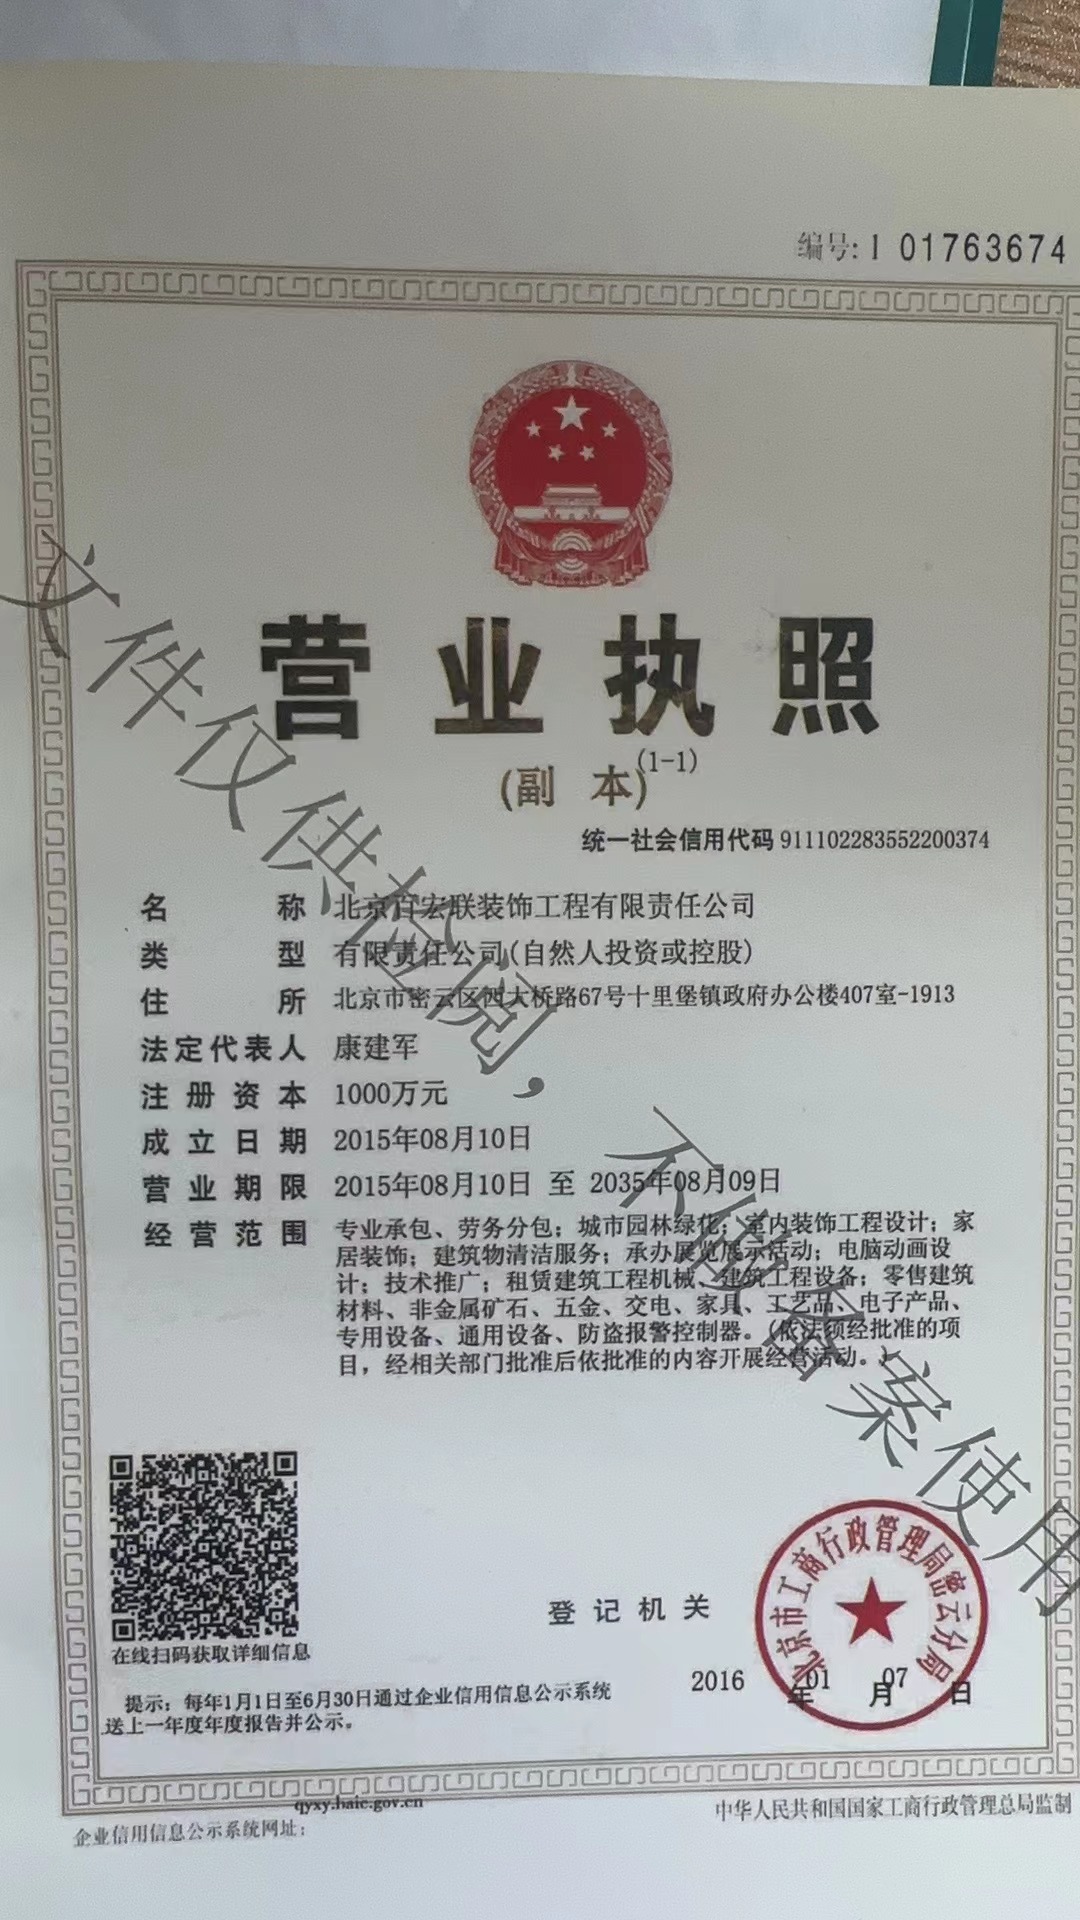 编号: 1 01763674
营业执照
(副 本)(1-1)
统一社会信用代码 911102283552200374
名 称 北京百宏联装饰工程有限责任公司
类 型 有限责任公司(自然人投资或控股)
住 所 北京市密云区西大桥路67号十里堡镇政府办公楼407室-1913
法定代表人 康建军
注册资本 1000万元
成立日期 2015年08月10日
营业期限 2015年08月10日 至 2035年08月09日
经营范围 专业承包、劳务分包；城市园林绿化；室内装饰工程设计；家
居装饰；建筑物清洁服务；承办展览展示活动；电脑动画设
计；技术推广；租赁建筑工程机械、建筑工程设备；零售建筑
材料、非金属矿石、五金、交电、家具、工艺品、电子产品、
专用设备、通用设备、防盗报警控制器。(依法须经批准的项
目，经相关部门批准后依批准的内容开展经营活动。)
文件仅供检阅，不做备案使用
在线扫码获取详细信息
登记机关
北京市工商行政管理局密云分局
2016年01月07日
提示：每年1月1日至6月30日通过企业信用信息公示系统
送上一年度年度报告并公示。
qyxy.baic.gov.cn
企业信用信息公示系统网址：
中华人民共和国国家工商行政管理总局监制